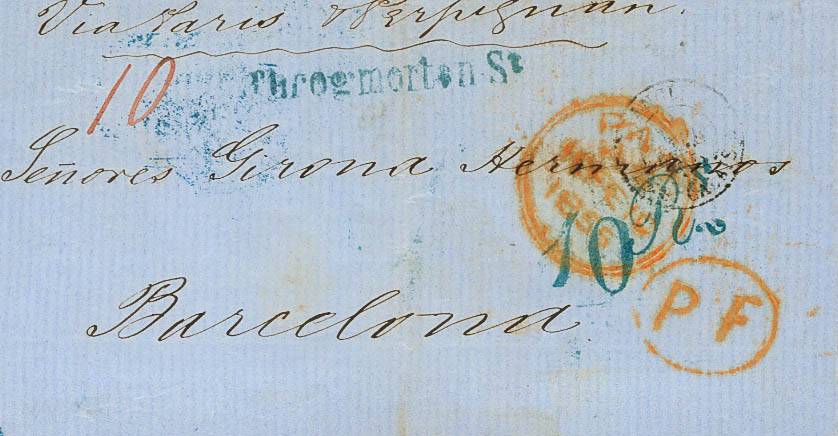 Via Paris & Perpignan.
10
Throgmorten St
Señores Girona Hermanos
PA
185
10 Rs
Barcelona
PF